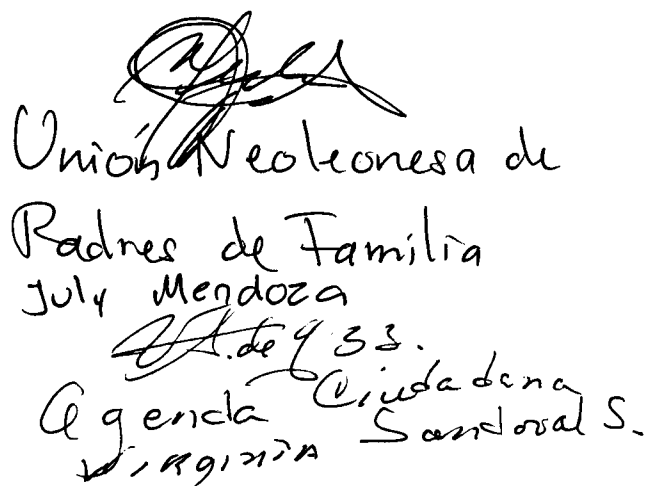 Unión Neoleonesa de
Padres de Familia
July Mendoza
Agenda Ciudadana
Virginia Sandoval S.